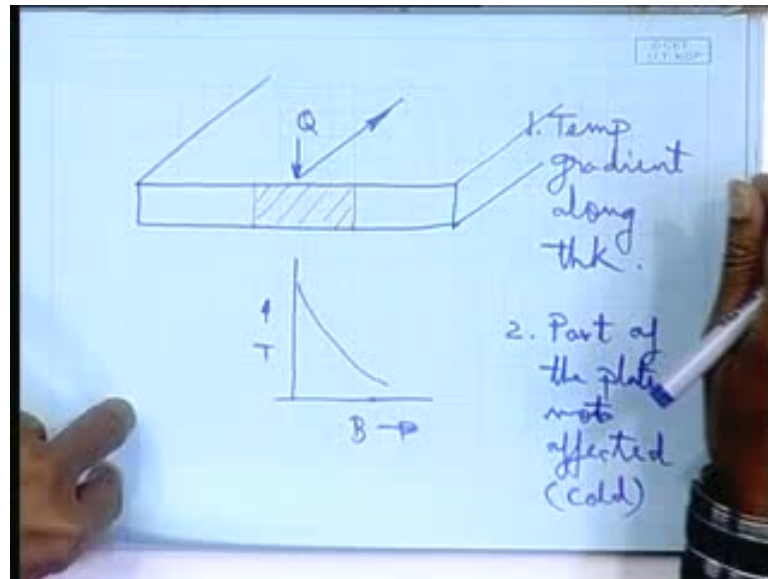 Q
1. Temp
gradient
along
thk.
T
B
2. Part of
the plate
not
affected
(cold)